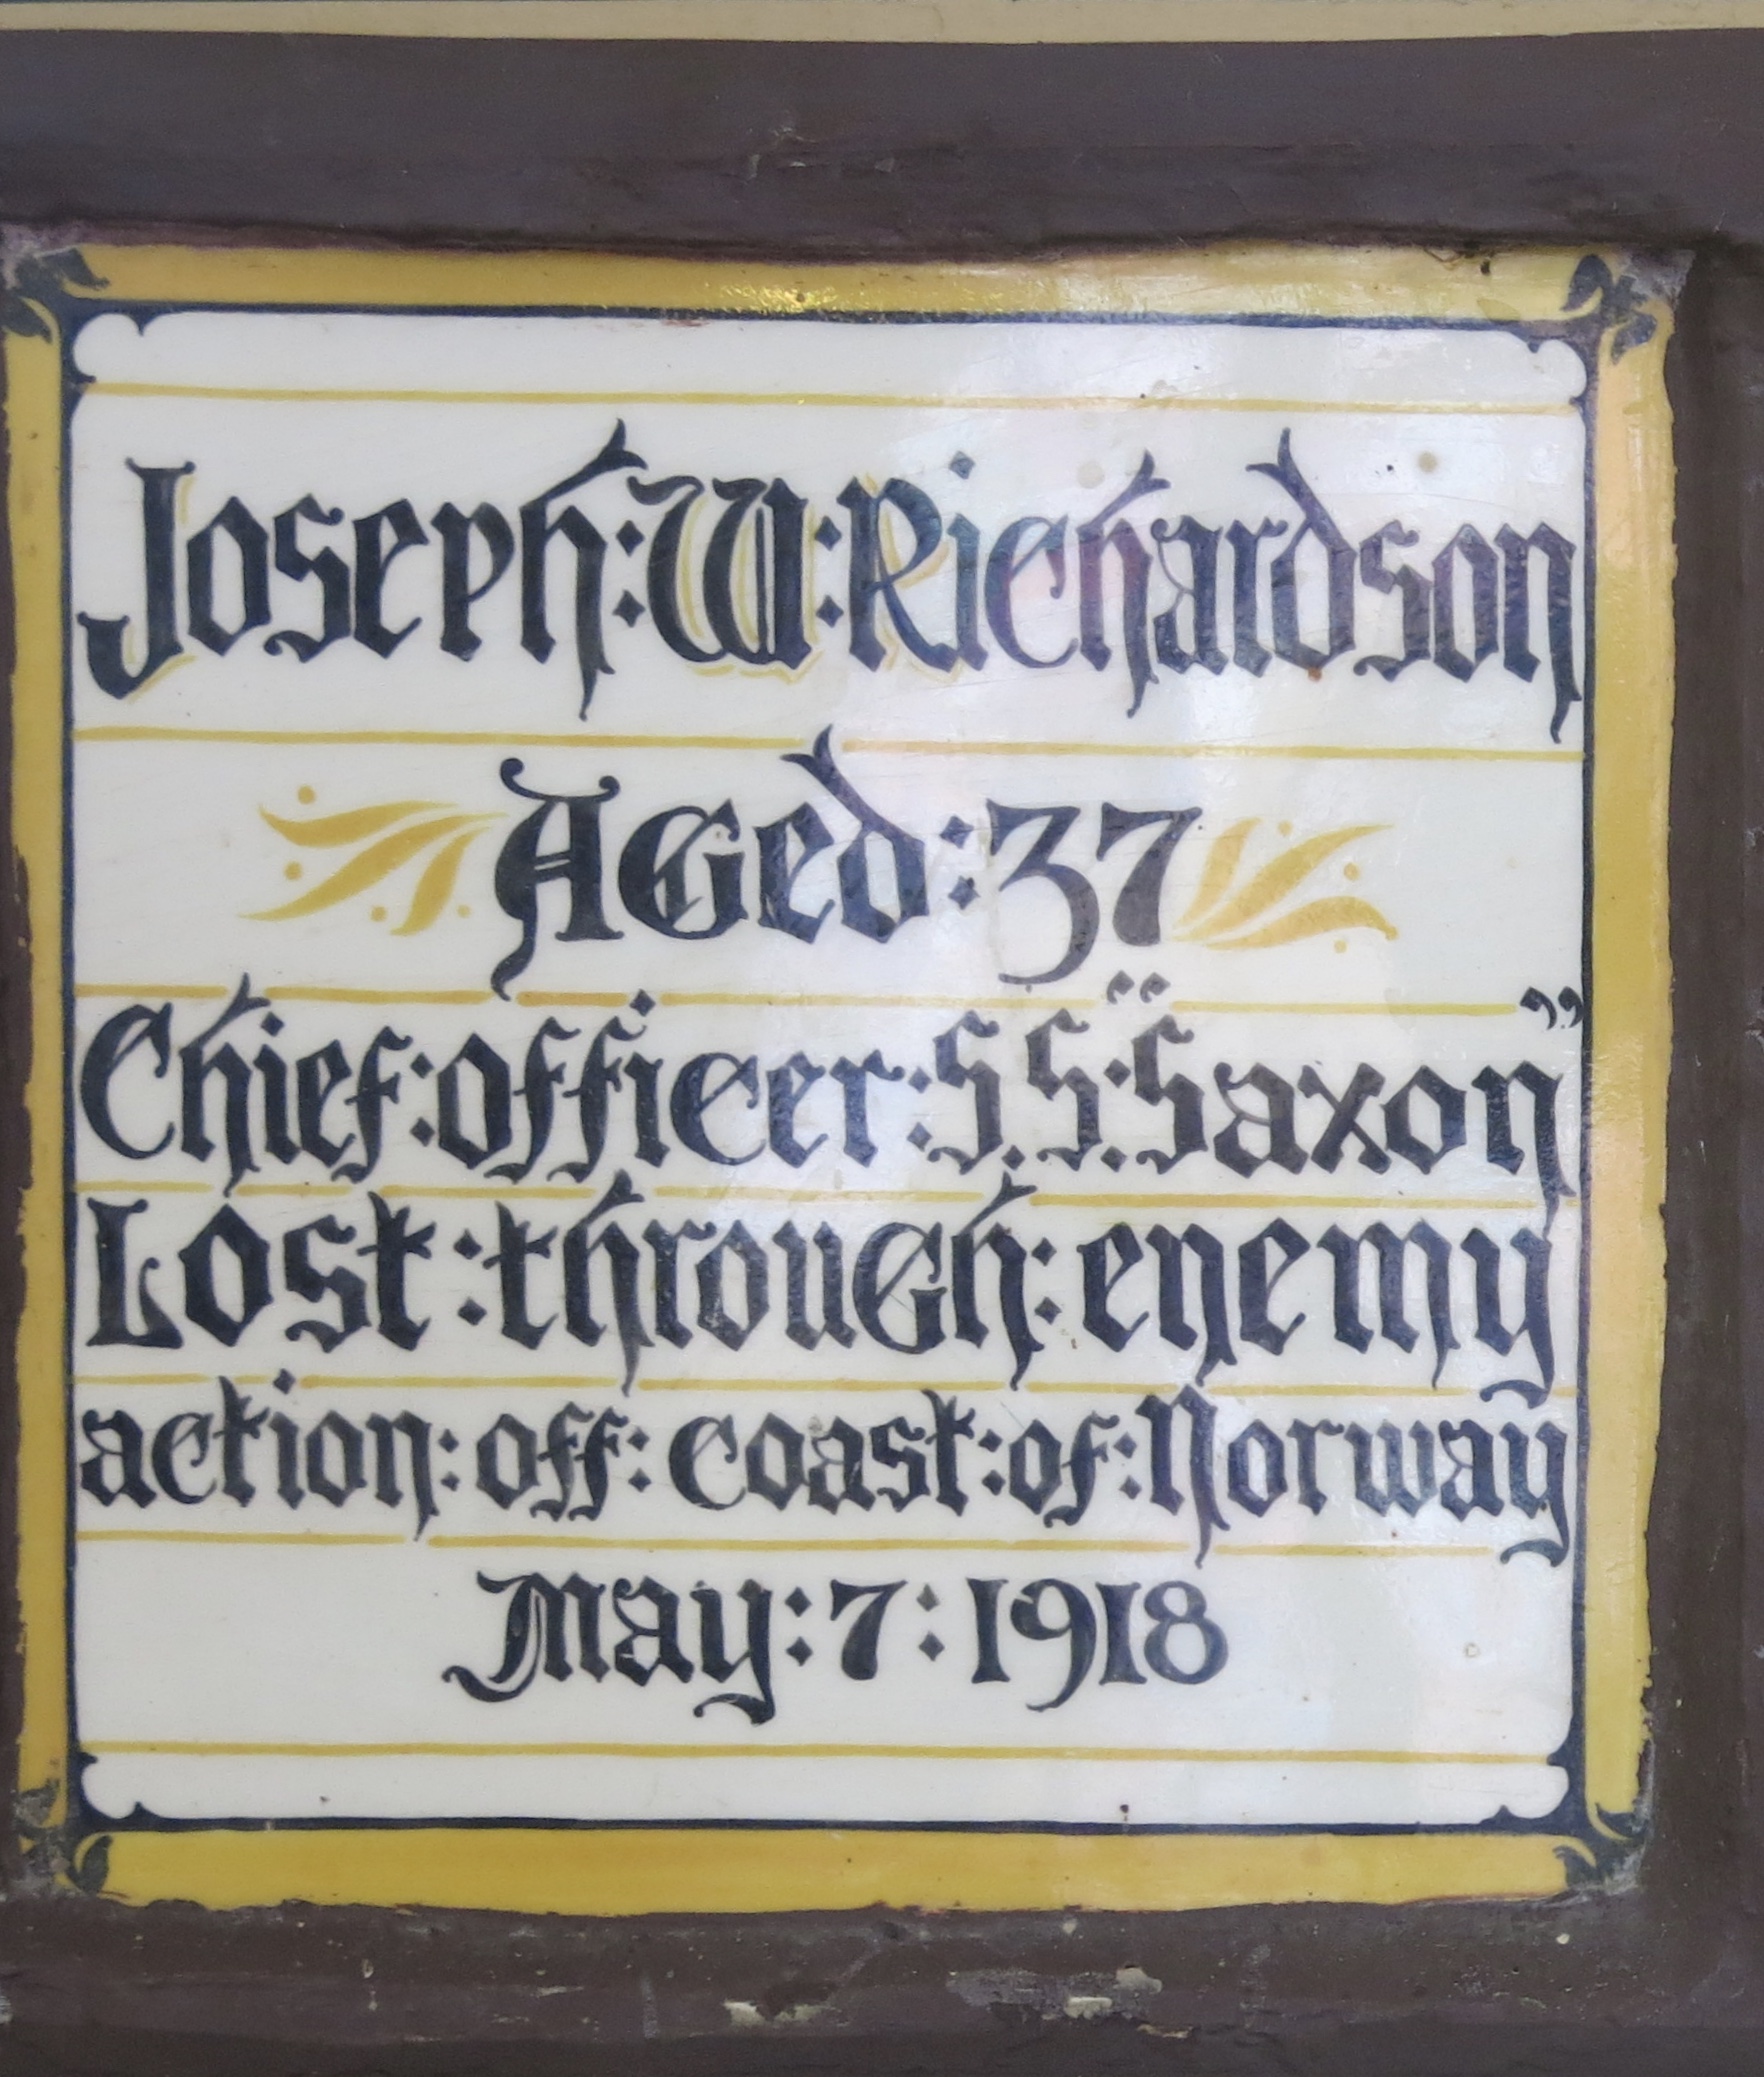 Joseph:W:Richardson
Aged:37
Chief:officer:S.S:"Saxon"
Lost:through:enemy
action:off:coast:of:Norway
May:7:1918